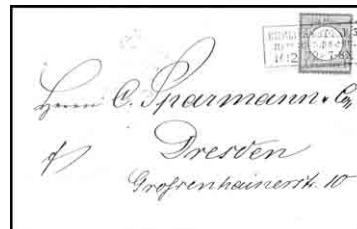 Herrn C. Sparmann & Co,
Dresden
Grossenhainerstr. 10